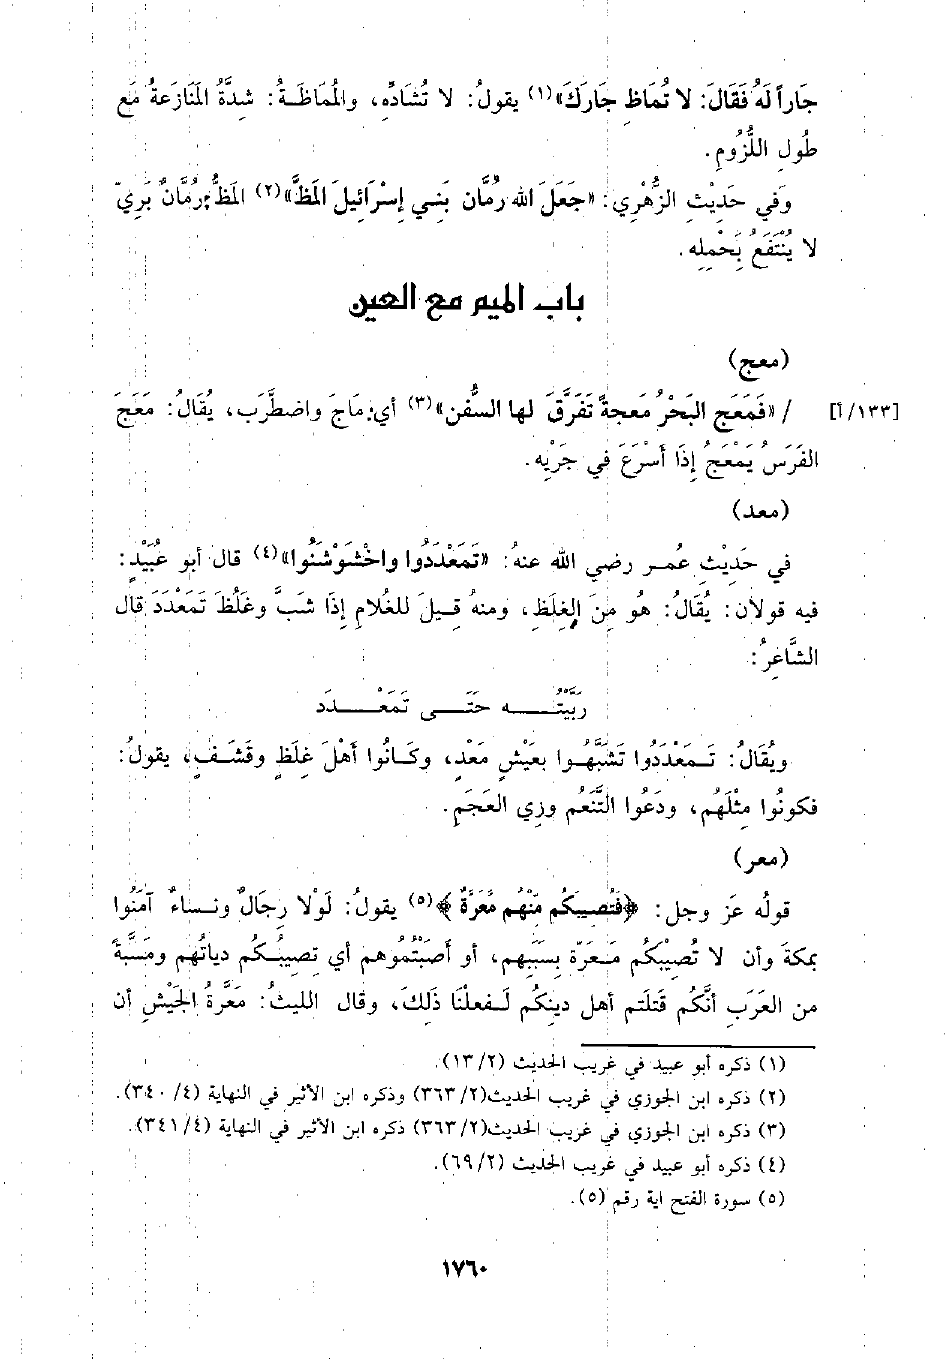 جَاراً لَهُ فَقَالَ: لا تُمَاظِ جَارَكَ»(١) يقولُ: لا تُشَادِّه، والمُمَاظَـةُ: شدَّةُ المَنَازعةُ مَع
طُولِ اللُّزُومِ.
وَفي حَدِيْثِ الزُّهْرِي: «جَعَلَ الله رُمَّان بَنـي إِسْرَائيلَ المَظَّ»(٢) المَظُّ: رُمَّانٌ بَرِيّ
لا يُنْتَفَعُ بِحَمْلِه.
باب الميم مع العين
(معج)
[١٣٣/أ] / «فَمَعَج البَحْرُ مَعجةً تَفَرَّقَ لها السُّفن»(٣) أي: مَاجَ واضطَّرَب، يُقَالُ: مَعَجَ
الفَرَسُ يَمْعَجُ إِذَا أَسْرَعَ في جَرْيِه.
(معد)
في حَدِيْثِ عُمـر رضي الله عنهُ: «تَمَعْدَدُوا واخْشَوْشَنُوا»(٤) قال أبو عُبَيْدٍ:
فيه قولان: يُقَالُ: هُو مِنَ الغِلَظِ، ومنهُ قـيلَ للغُلامِ إِذَا شَبَّ وغَلُظَ تَمَعْدَدَ قال
الشَّاعِرُ:
رَبَّيْتُـــــه حَتَــى تَمَعْـــدَد
ويُقَالُ: تَـمعْدَدُوا تَشَبَّهُـوا بعَيْشِ مَعْدٍ، وكَـانُوا أَهْلَ غِلَظٍ وقَشَـفٍ، يقولُ:
فكونُوا مِثْلَهُم، ودَعُوا التَّنَعُم وزِي العَجَمِ.
(معر)
قولُه عَز وجل: ﴿فَتُصِيبَكُم مِّنْهُم مَّعَرَّةٌ﴾(٥) يقولُ: لَوْلا رِجَالٌ ونـساءٌ آمَنُوا
بمكةَ وأن لا تُصِيْبكُم مَـعَرَّة بِسَبَبِهم، أو أَصَبْتُموهم أي تصِيبُـكُم دياتُهم ومَسَبَّةً
من العَرَبِ أنَّكُم قَتلَتم أهل دينِكُم لَـفعلْنَا ذَلِكَ، وقال الليثُ: مَعَّرةُ الجَيْشِ أن
(١) ذكره أبو عبيد في غريب الحديث (١٣/٢).
(٢) ذكره ابن الجوزي في غريب الحديث(٣٦٣/٢) وذكره ابن الأثير في النهاية (٣٤٠/٤).
(٣) ذكره ابن الجوزي في غريب الحديث(٣٦٣/٢) ذكره ابن الأثير في النهاية (٣٤١/٤).
(٤) ذكره أبو عبيد في غريب الحديث (٦٩/٢).
(٥) سورة الفتح اية رقم (٥).
١٧٦٠